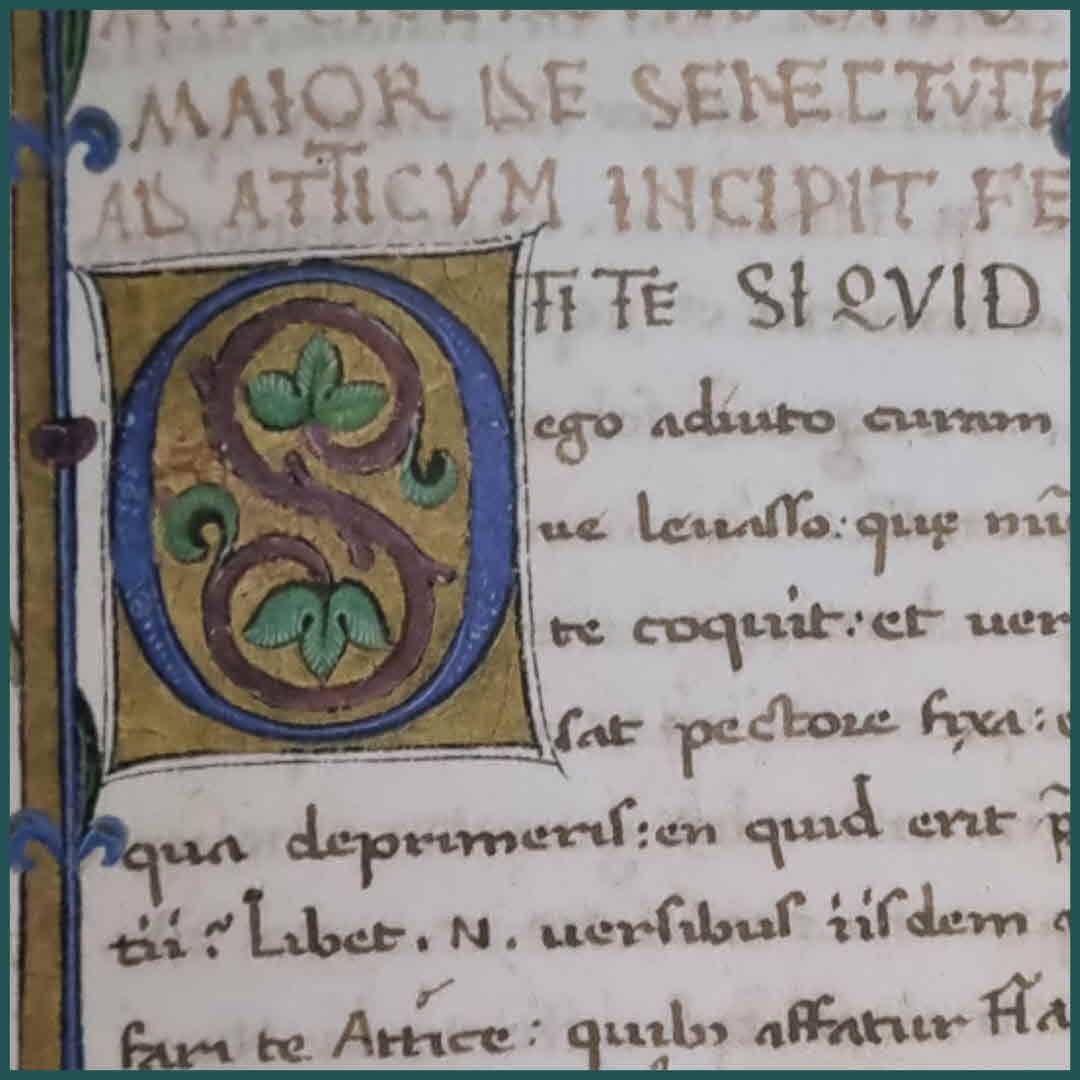 MAIOR DE SENECTVTE
AD ATTICVM INCIPIT FE
O TI TE SI QVID
ego adiuto curam
ue leuasso: quę nũ
te coquit: et uer
sat pectore fixa:
qua deprimeris: en quid erit p̃
tii? Libet. N. uersibus iisdem
fari te Attice: quibꝫ affatur Fla